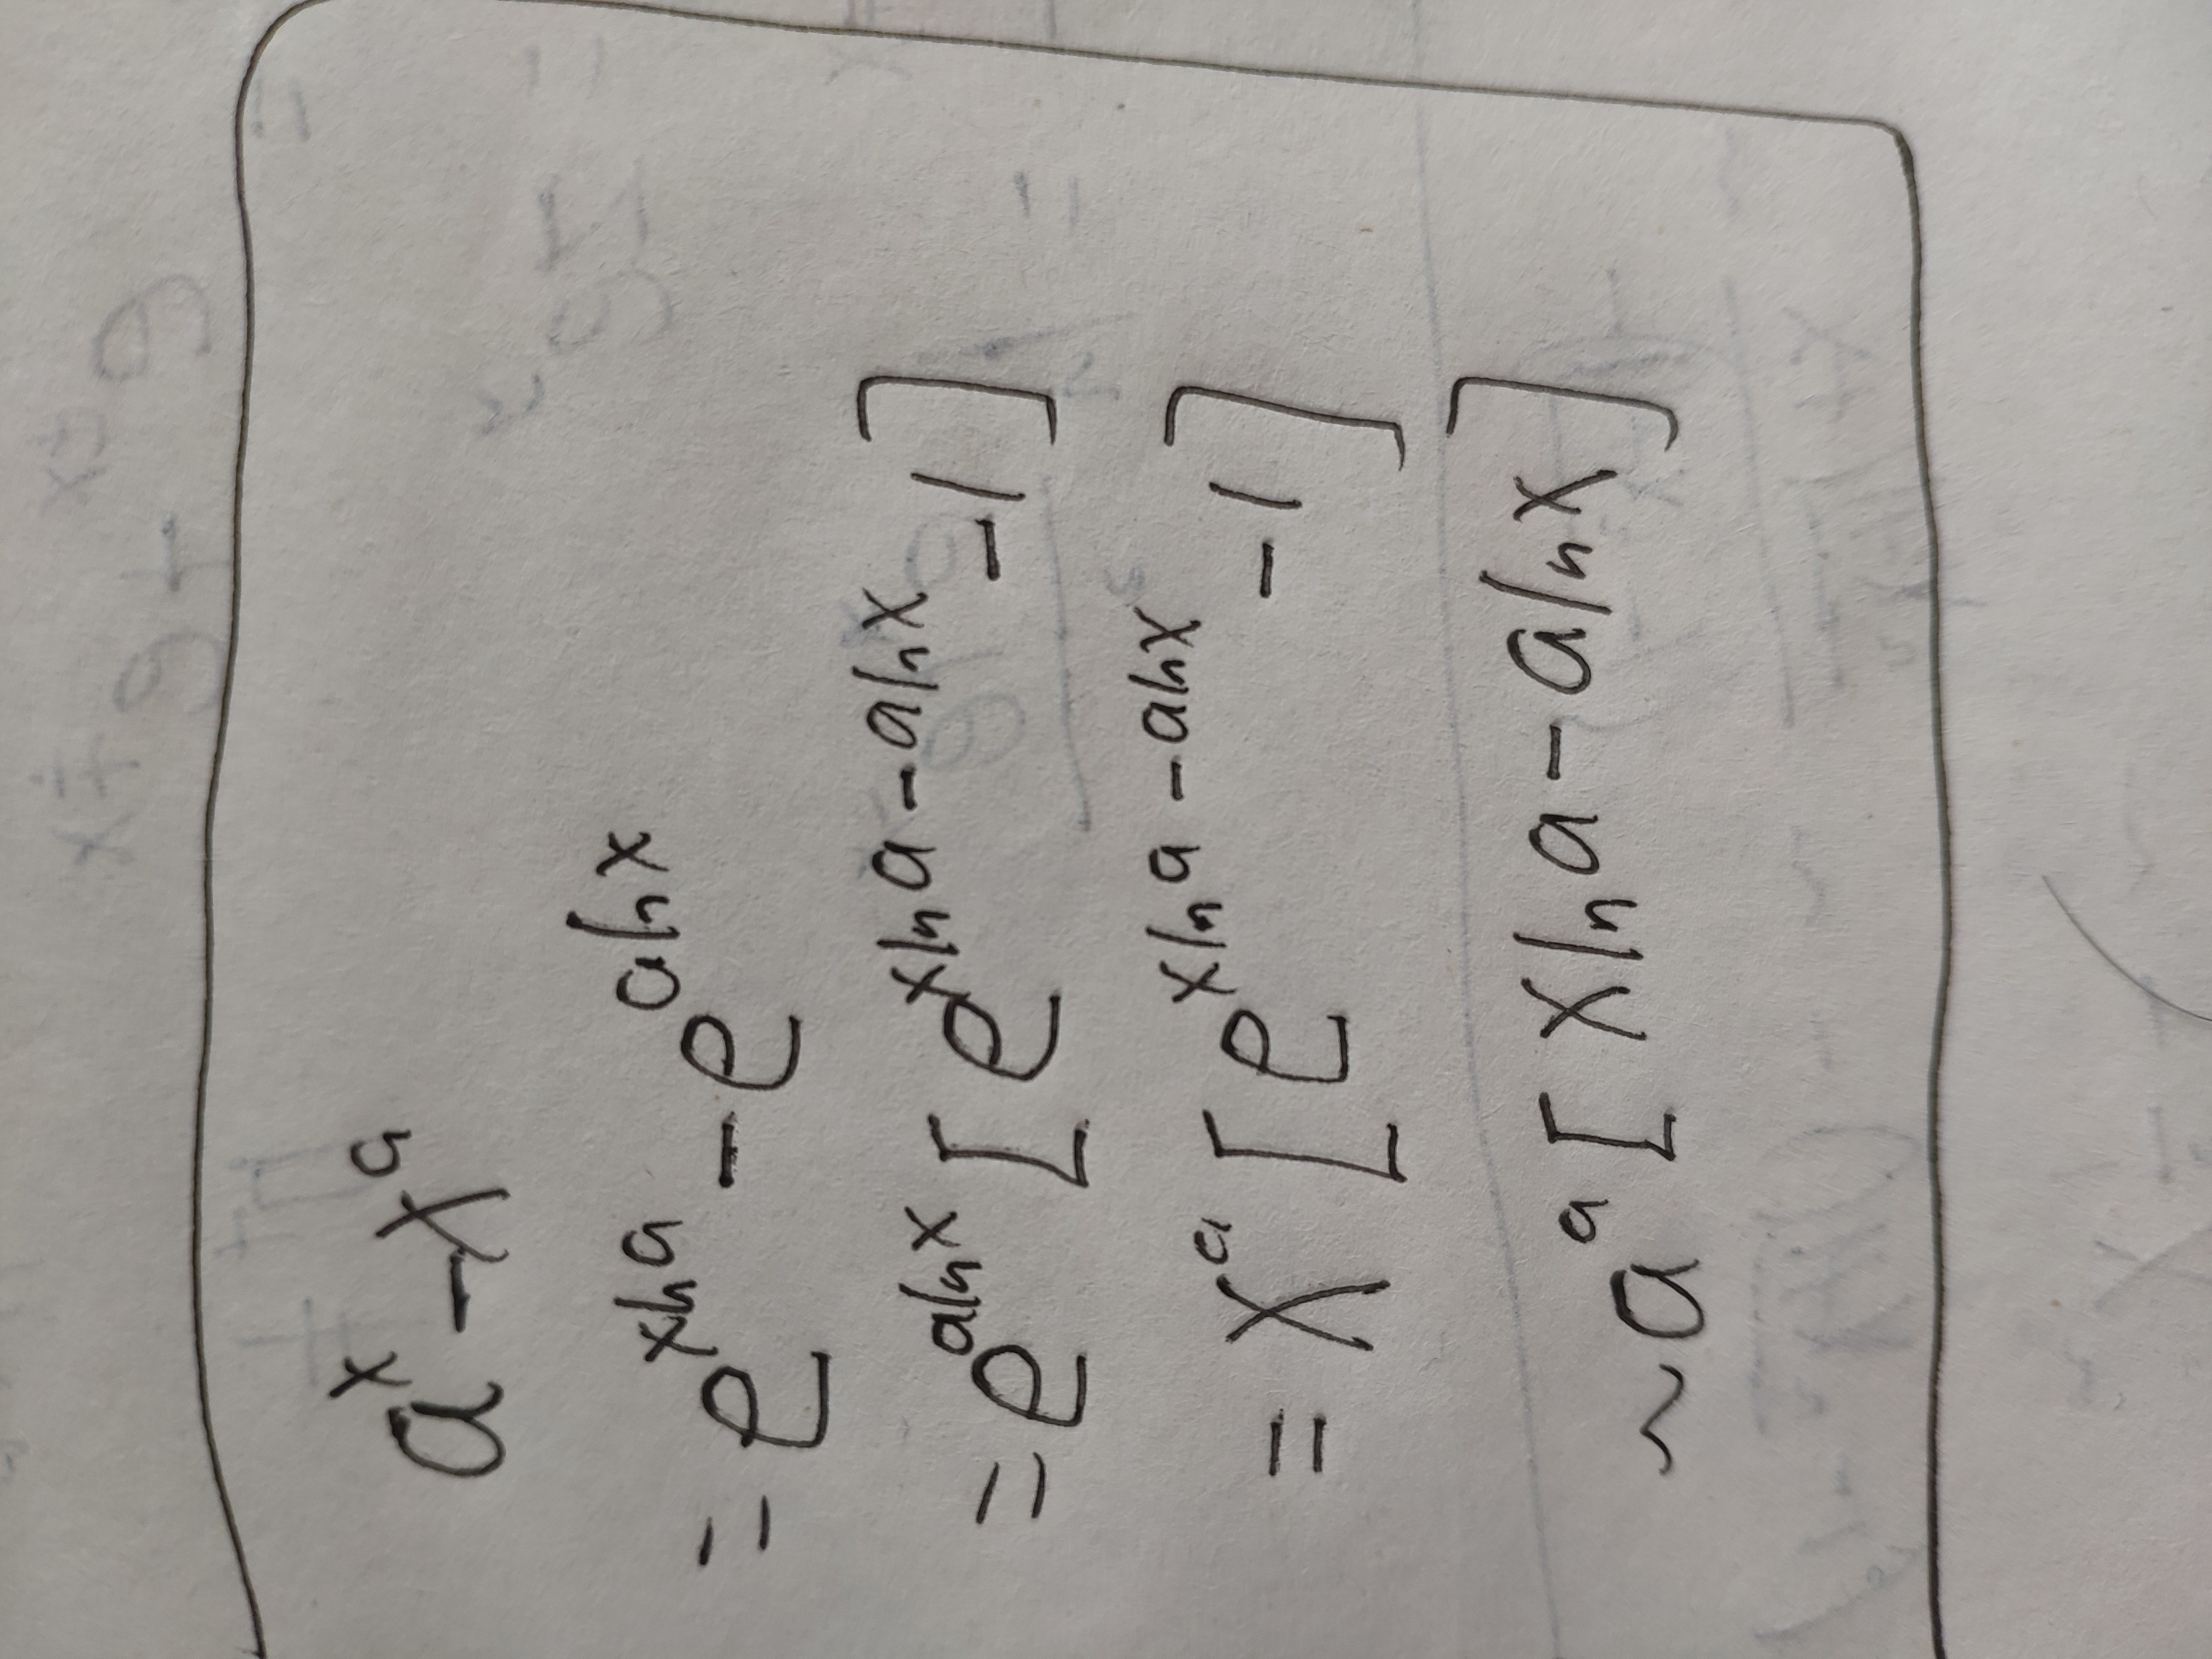 a^x - x^a
= e^{x ln a} - e^{a ln x}
= e^{a ln x} [e^{x ln a - a ln x} - 1]
= x^a [e^{x ln a - a ln x} - 1]
~ a^a [x ln a - a ln x]